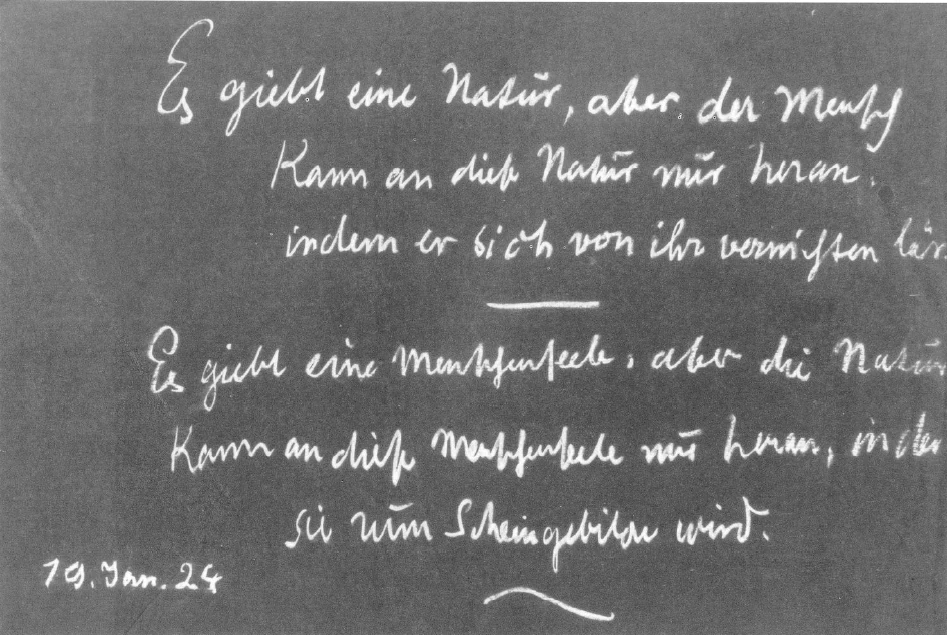 Es giebt eine Natur, aber der Mensch
Kann an diese Natur nur heran,
indem er sich von ihr vernichten läs
Es giebt eine Menschenseele, aber die Natur
Kann an diese Menschenseele nur heran, indem
sie zum Scheingebilde wird.
19. Jan. 24